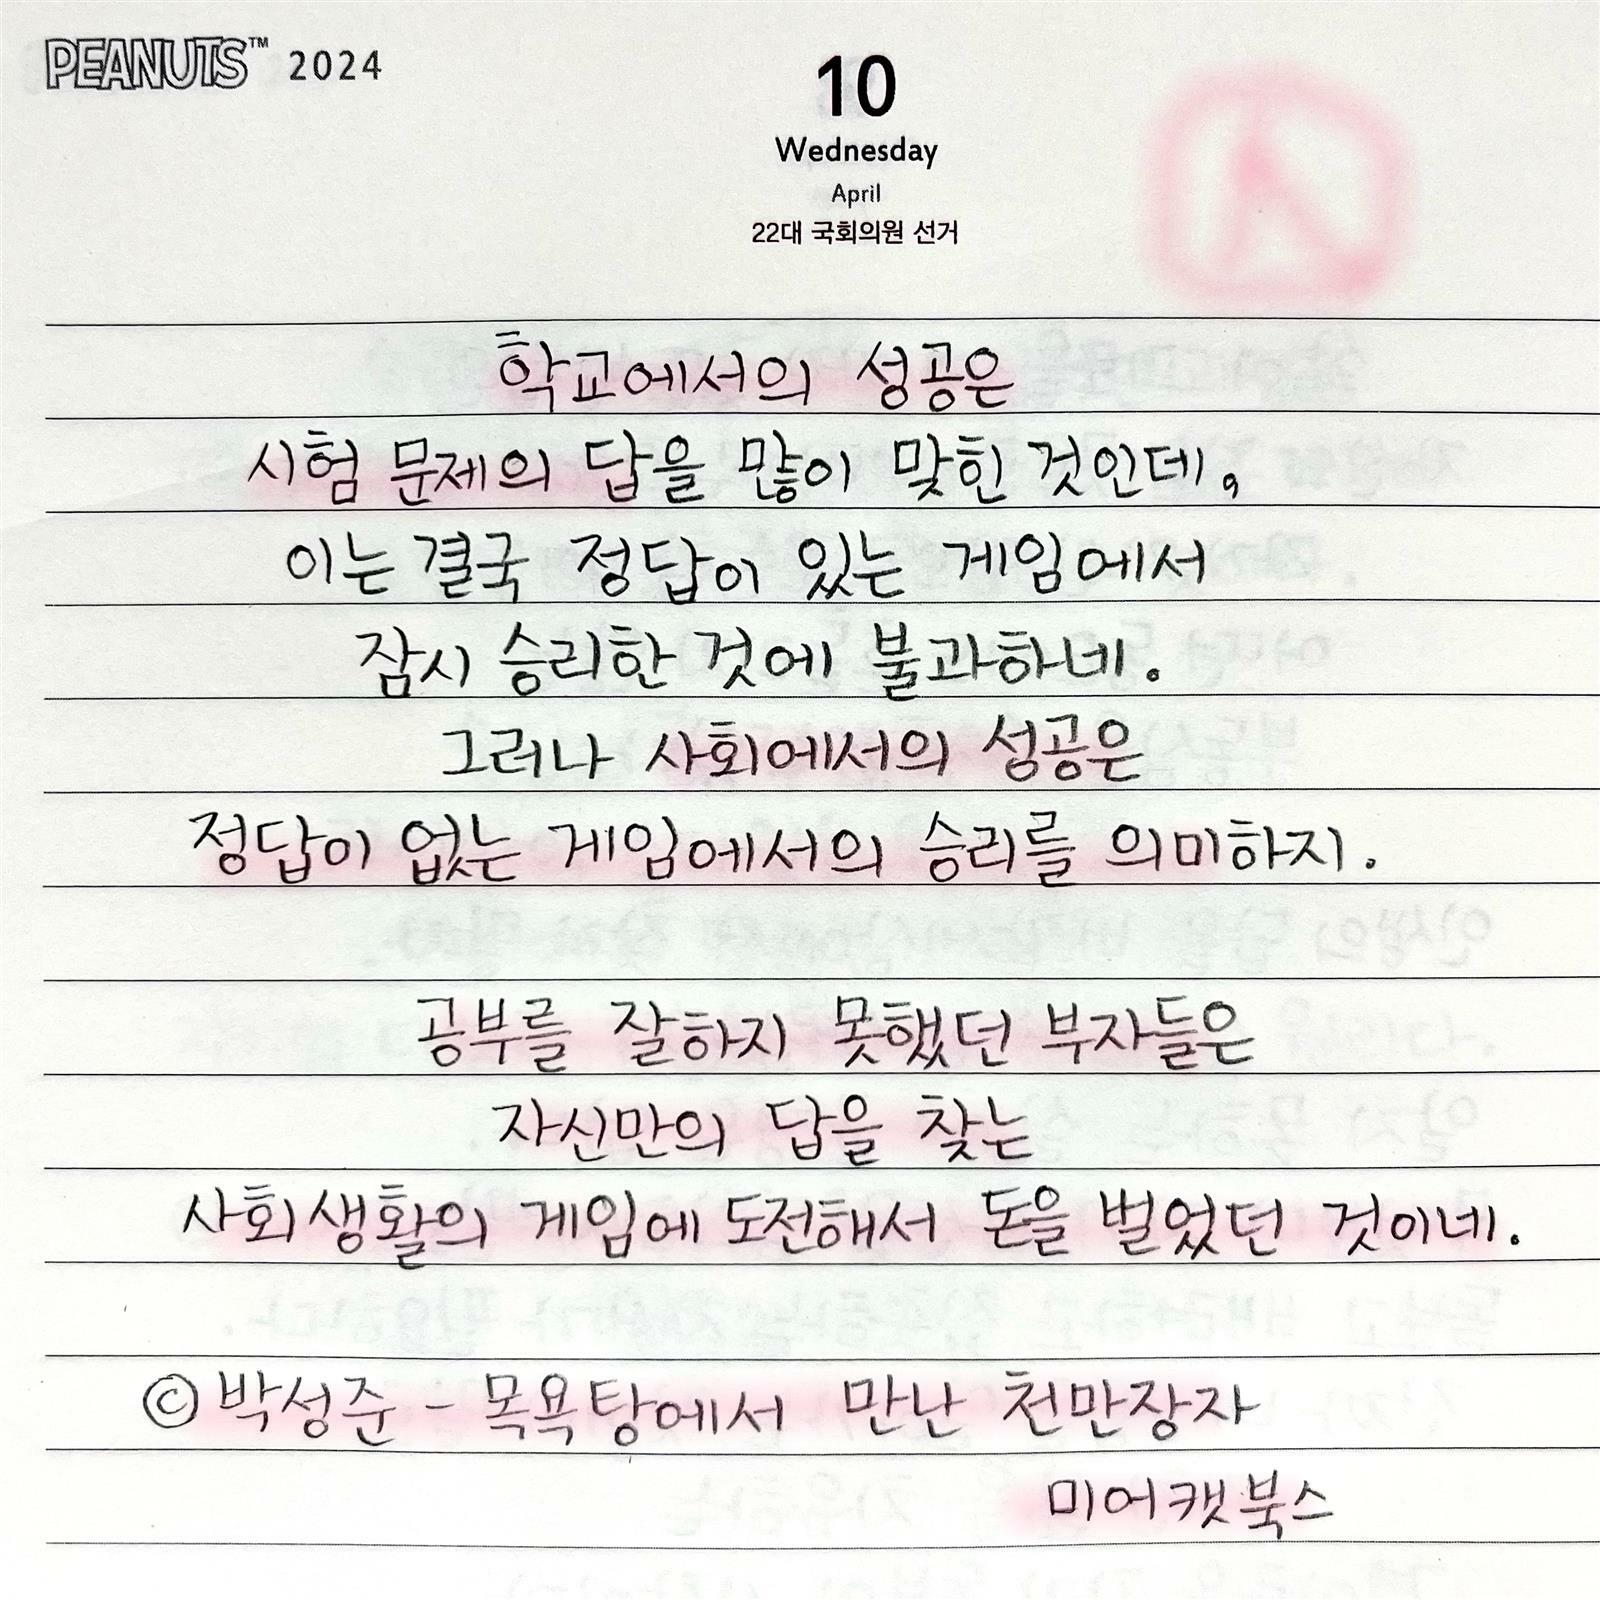 PEANUTS™ 2024
10
Wednesday
April
22대 국회의원 선거
학교에서의 성공은
시험 문제의 답을 많이 맞힌 것인데,
이는 결국 정답이 있는 게임에서
잠시 승리한 것에 불과하네.
그러나 사회에서의 성공은
정답이 없는 게임에서의 승리를 의미하지.
공부를 잘하지 못했던 부자들은
자신만의 답을 찾는
사회생활의 게임에 도전해서 돈을 벌었던 것이네.
©박성준 - 목욕탕에서 만난 천만장자
미어캣북스